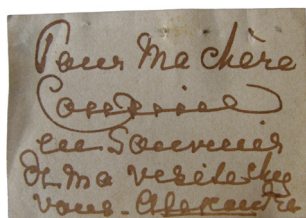 Pour Ma chère
Cousine
en Souvenir
de ma visite chez
vous. Alexandre